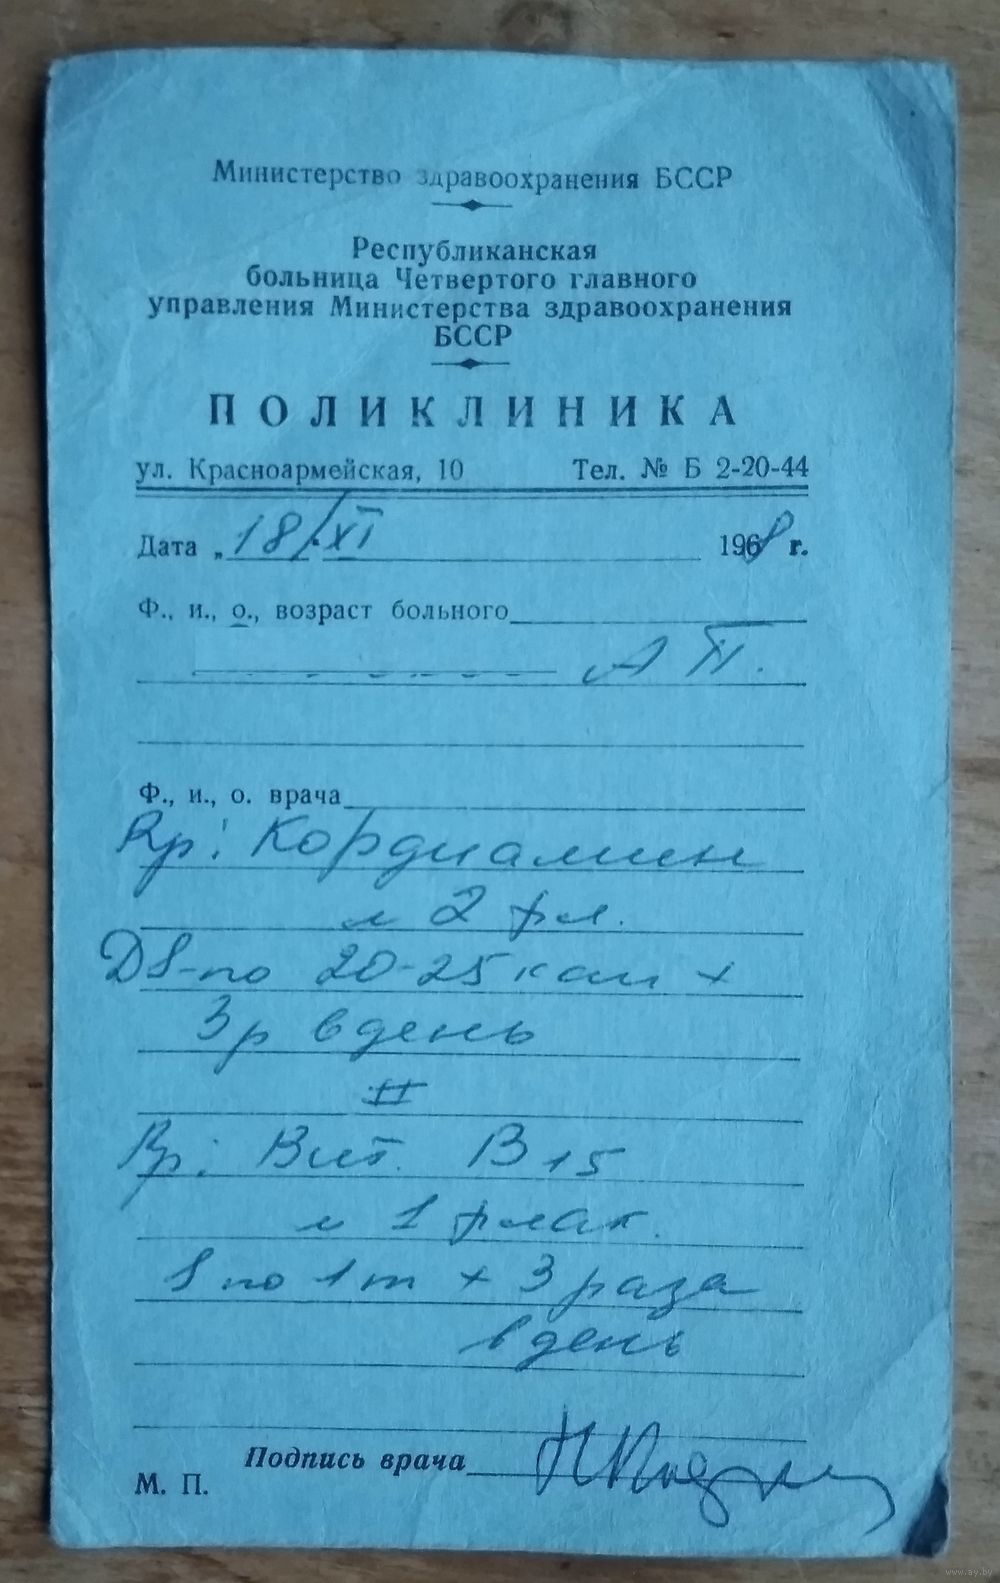 Министерство здравоохранения БССР
Республиканская
больница Четвертого главного
управления Министерства здравоохранения
БССР
ПОЛИКЛИНИКА
ул. Красноармейская, 10 Тел. № Б 2-20-44
Дата „18/XI 1968 г.
Ф., и., о., возраст больного
А П.
Ф., и., о. врача
Rp: Кордиамин
2 фл.
DS-по 20-25 кап ×
3р в день
II
Rp: Вит. В 15
1 флак.
S по 1 т × 3 раза
в день
Подпись врача
М. П.
www.ay.by